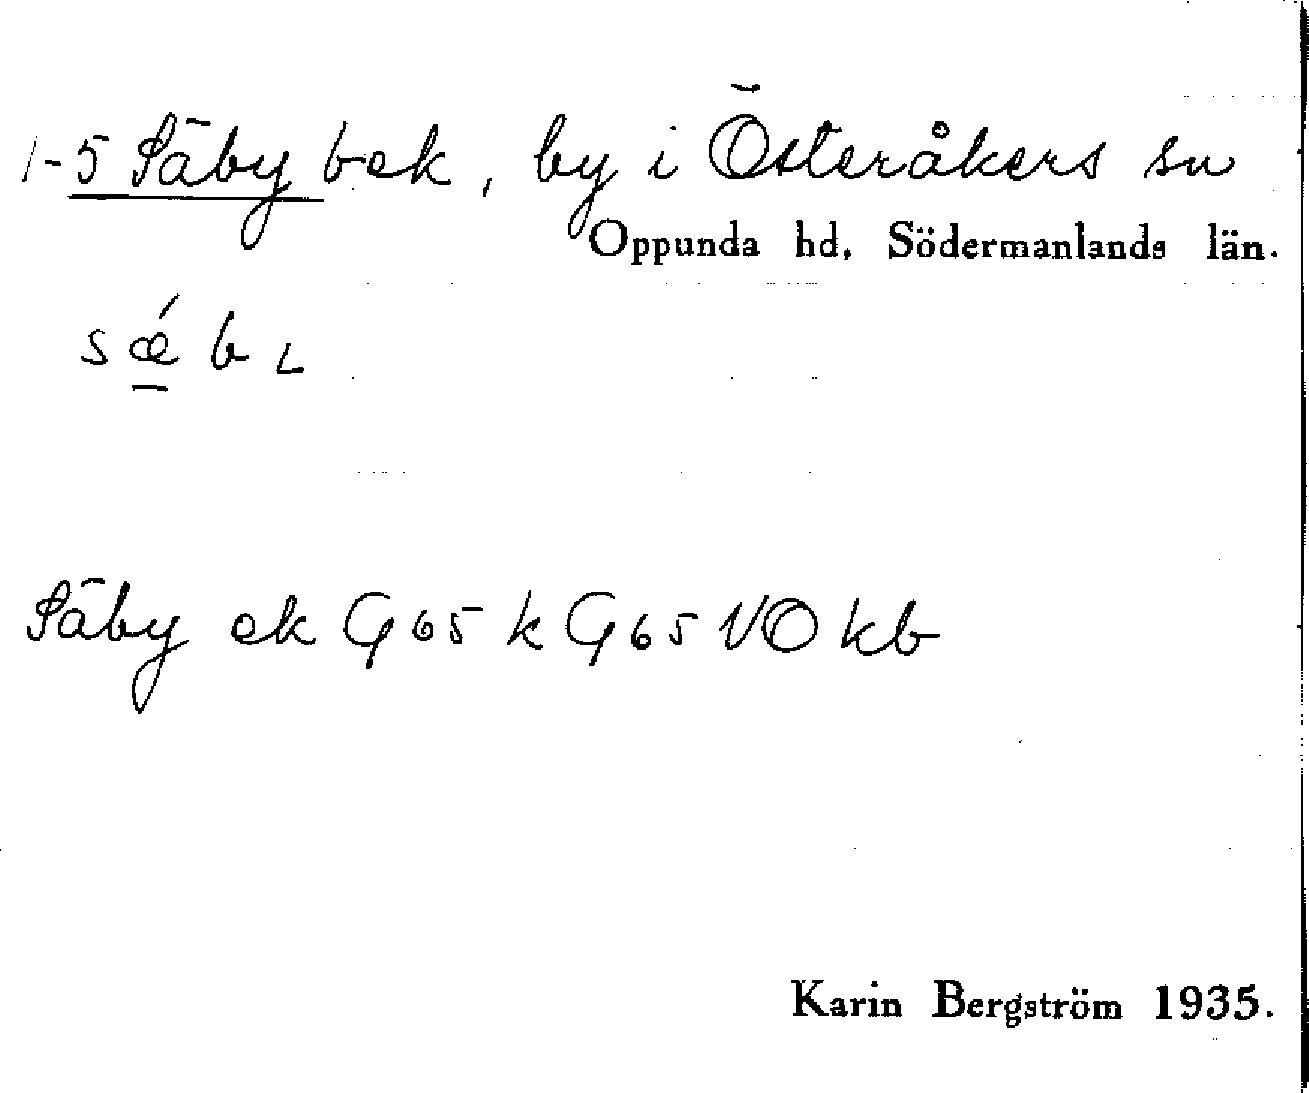 1-5 Säby bek, by i Österåkers sn
Oppunda hd, Södermanlands län.
sǽbɩ
Säby ek G65 k G65 NO kb
Karin Bergström 1935.